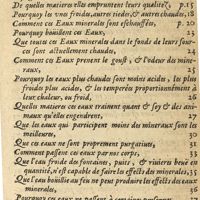 De quelles matieres elles empruntent leurs qualitez, p.15
Pourquoy les vnes froides, autres tiedes, & autres chaudes, 18
Comment ces Eaux minerales sont eschauffées, p. 20
Pourquoy boüillent ces Eaux, 23
Que toutes ces Eaux minerales dans le fonds de leurs sour-
ces sont actuellement chaudes,
Comment ces Eaux prenent le goust, & l'odeur des mine-
raux, 25
Pourquoy les eaux plus chaudes sont moins acides, les plus
froides plus acides, & les temperées proportionnément à
leur chaleur, ou froid, 26
Quelles matieres ces eaux trainent quant & soy & des ani-
maux qu'elles engendrent, 27
Que les eaux qui participent moins des mineraux sont les
meilleures, 30
Que ces eaux ne sont proprement purgatiues, 31
Comment passent ces eaux par nos corps, 33
Que l'eau froide des fontaines, puits, & riuieres beuë en
quantité, n'est capable de faire les effects des minerales, 35
Que l'eau bouillie au feu ne peut produire les effects des eaux
minerales, 36
Pourquoy ces eaux ne passent à certaines personnes,